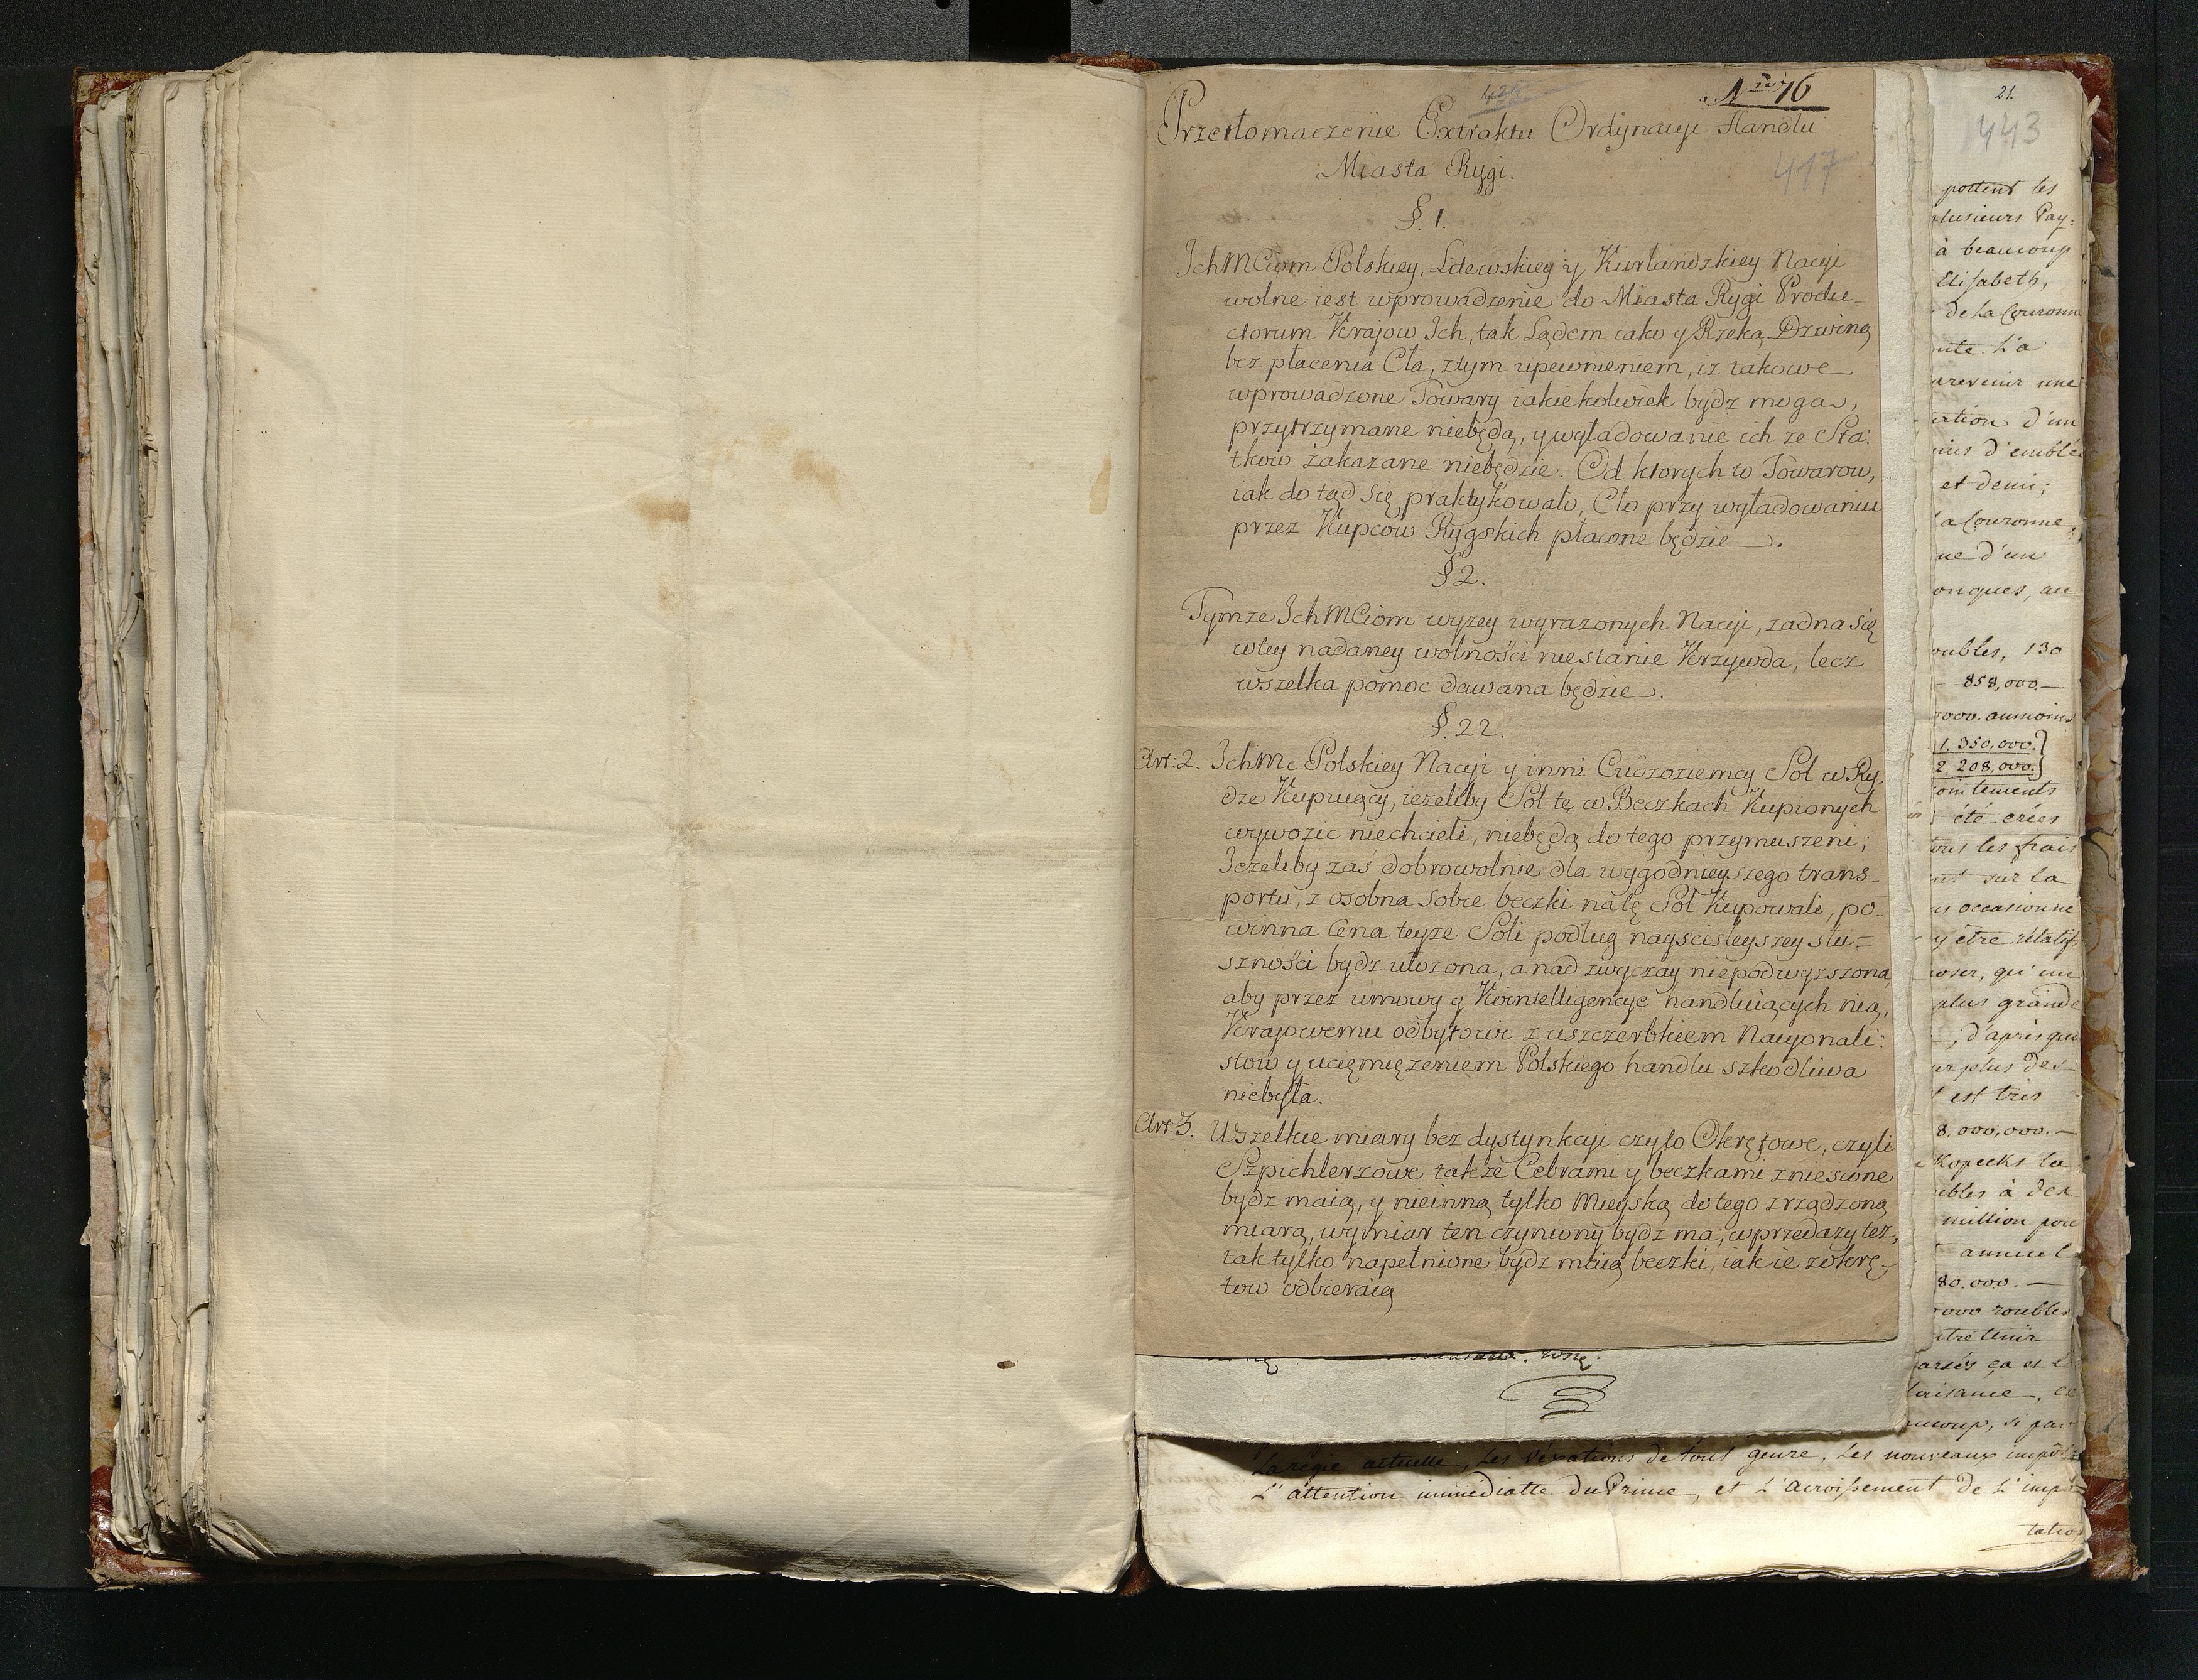 435
Nro 76
Przetłomaczenie Extraktu Ordynacyi Handlu
Miasta Rygi.
417
§. 1.
IchMCiom Polskiey, Litewskiey y Kurlandzkiey Nacyi
wolne iest wprowadzenie do Miasta Rygi Produ-
ctorum Kraiow Ich, tak Lądem iako y Rzeką Dzwiną
bez płacenia Cła, z tym upewnieniem, iz takowe
wprowadzone Towary iakiekolwiek bydz mogą,
przytrzymane niebędą, y wyładowanie ich ze Sta:
tkow zakazane niebędzie. Od ktorych to Towarow,
iak do tąd się praktykowało, Cło przy wyładowaniu
przez Kupcow Rygskich płacone będzie.
§ 2.
Tymze IchMCiom wyzey wyrazonych Nacyi, zadna się
wtey nadaney wolności niestanie Krzywda, lecz
wszelka pomoc dawana będzie.
§. 22.
Art: 2. IchMc Polskiey Nacyi y inni Cudzoziemcy Sol w Ry-
dze Kupuiący, iezeliby Sol tę w Beczkach Kupionych
wywozic niechcieli, niebędą do tego przymuszeni;
Iezeliby zas dobrowolnie dla wygodnieyszego trans-
portu, z osobna sobie beczki na tę Sol Kupowali, po-
winna Cena teyze Soli podług nayscisleyszey słu-
szności bydz ułozona, a nad zwyczay niepodwyzszona,
aby przez umowy y Kointelligencye handluiących nią,
Kraiowemu odbytowi z uszczerbkiem Nacyonali:
stow y uciemięzeniem Polskiego handlu szkodliwa
niebyła.
Art: 3. Wszelkie miary bez dystynkcyi czy to Okrętowe, czyli
Szpichlerzowe takze Cebrami y beczkami zniesione
bydz maią, y nieinną tylko Mieyską do tego zrządzoną
miarą, wymiar ten czyniony bydz ma, w przedazy tez,
tak tylko napełnione bydz maią beczki, iak ie z okrę-
tow odbieraią
21.
443
portent les
plusieurs Pay:
à beaucoup
Elisabeth,
de la Couronne
L'a
une
d'un
et demi;
la Couronne,
d'un
au
roubles, 130
858,000.—
aumoins
1,350,000.
2,208,000.
été crées
tous les frais
sur la
occasionné
y être rélatif
qu'une
plus grande
d'après
est très
8,000,000.—
Kopecks
million
annuel
80.000.—
roubles
La régie actuelle, Les véxations de tout genre, Les nouveaux impôts
L'attention immédiatte du Prince, et L'acroissement de L'impor-
tation